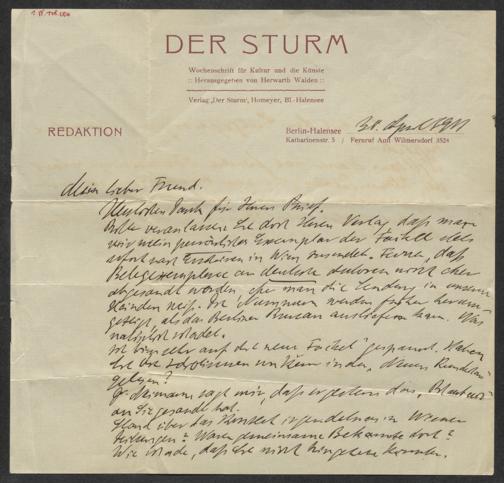 DER STURM
Wochenschrift für Kultur und die Künste
:: Herausgegeben von Herwarth Walden ::
Verlag „Der Sturm“, Homeyer, Bl.-Halensee
REDAKTION
Berlin-Halensee 30. April 1911
Katharinenstr. 5 / Fernruf Amt Wilmersdorf 3524
Mein lieber Freund.
Herzlichsten Dank für Ihren Brief.
Bitte veranlassen Sie doch Ihren Verlag daß man
mir mein persönliches Exemplar der Fackel stets
sofort nach Erscheinen in Wien zusendet. Ferner, daß
Belegexemplare an deutsche Autoren nicht eher
abgesandt werden, ehe man die Sendung in unseren
Händen weiß. Die Nummern werden früher herum-
gezeigt, als das Berliner Bureau ausliefern kann. Was
natürlich schadet.
Ich bin sehr auf die neue Fackel gespannt. Haben
Sie die in der „Neuen Rundschau“
gelesen?
sagt mir, daß er gestern das
an Sie gesandt hat.
Stand über das Konzert irgendetwas in Wiener
Zeitungen? Waren gemeinsame Bekannte dort?
Wie schade, daß Sie nicht hingehen konnten.